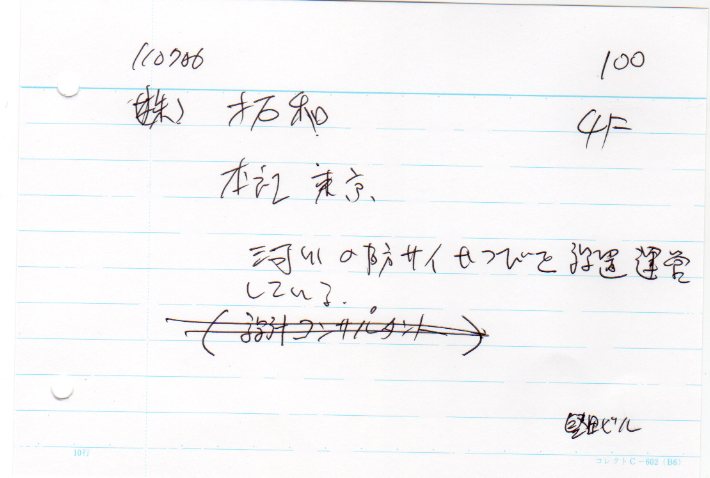 110706
100
(株) 拓和
4F
本社 東京、
河川の防サイせつびを設置運営
している.
(設計コンサルタント)
ビル
10行
コレクト C-602 (B6)